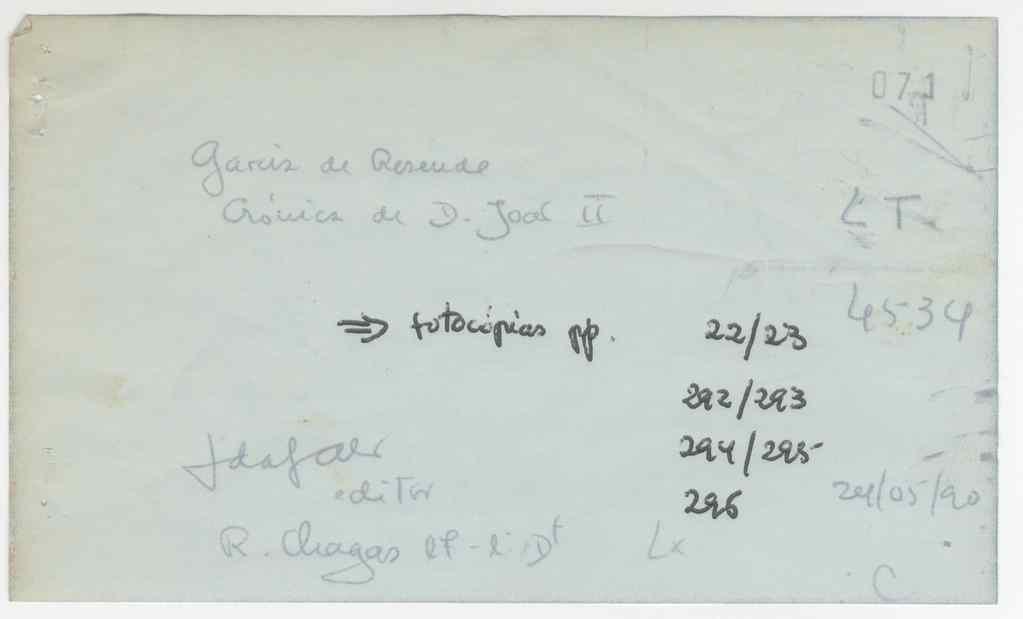 071
Garcia de Resende
Crónica de D. João II
LT
4534
⇒ fotocópias pp. 22/23
292/293
294/295
296
editor
24/05/90
R. Chagas Dt Lx
C